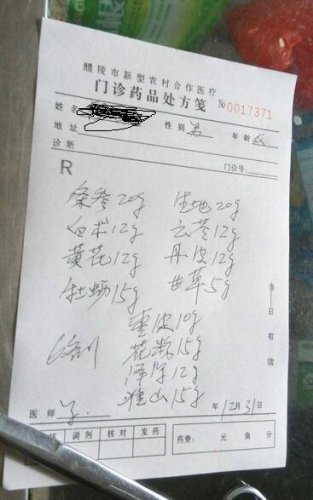 醴陵市新型农村合作医疗
门诊药品处方笺 №0017371
姓名 性别 男 年龄
地址
诊断 门诊号:
R
党参20g 生地20g
白术12g 云苓12g
黄芪12g 丹皮12g
牡蛎15g 甘草5g
皮10g
花粉15g
泽泻12g
淮山15g
当日有效
医师 年12月31日
调剂 核对 发药 药费: 元 角 分